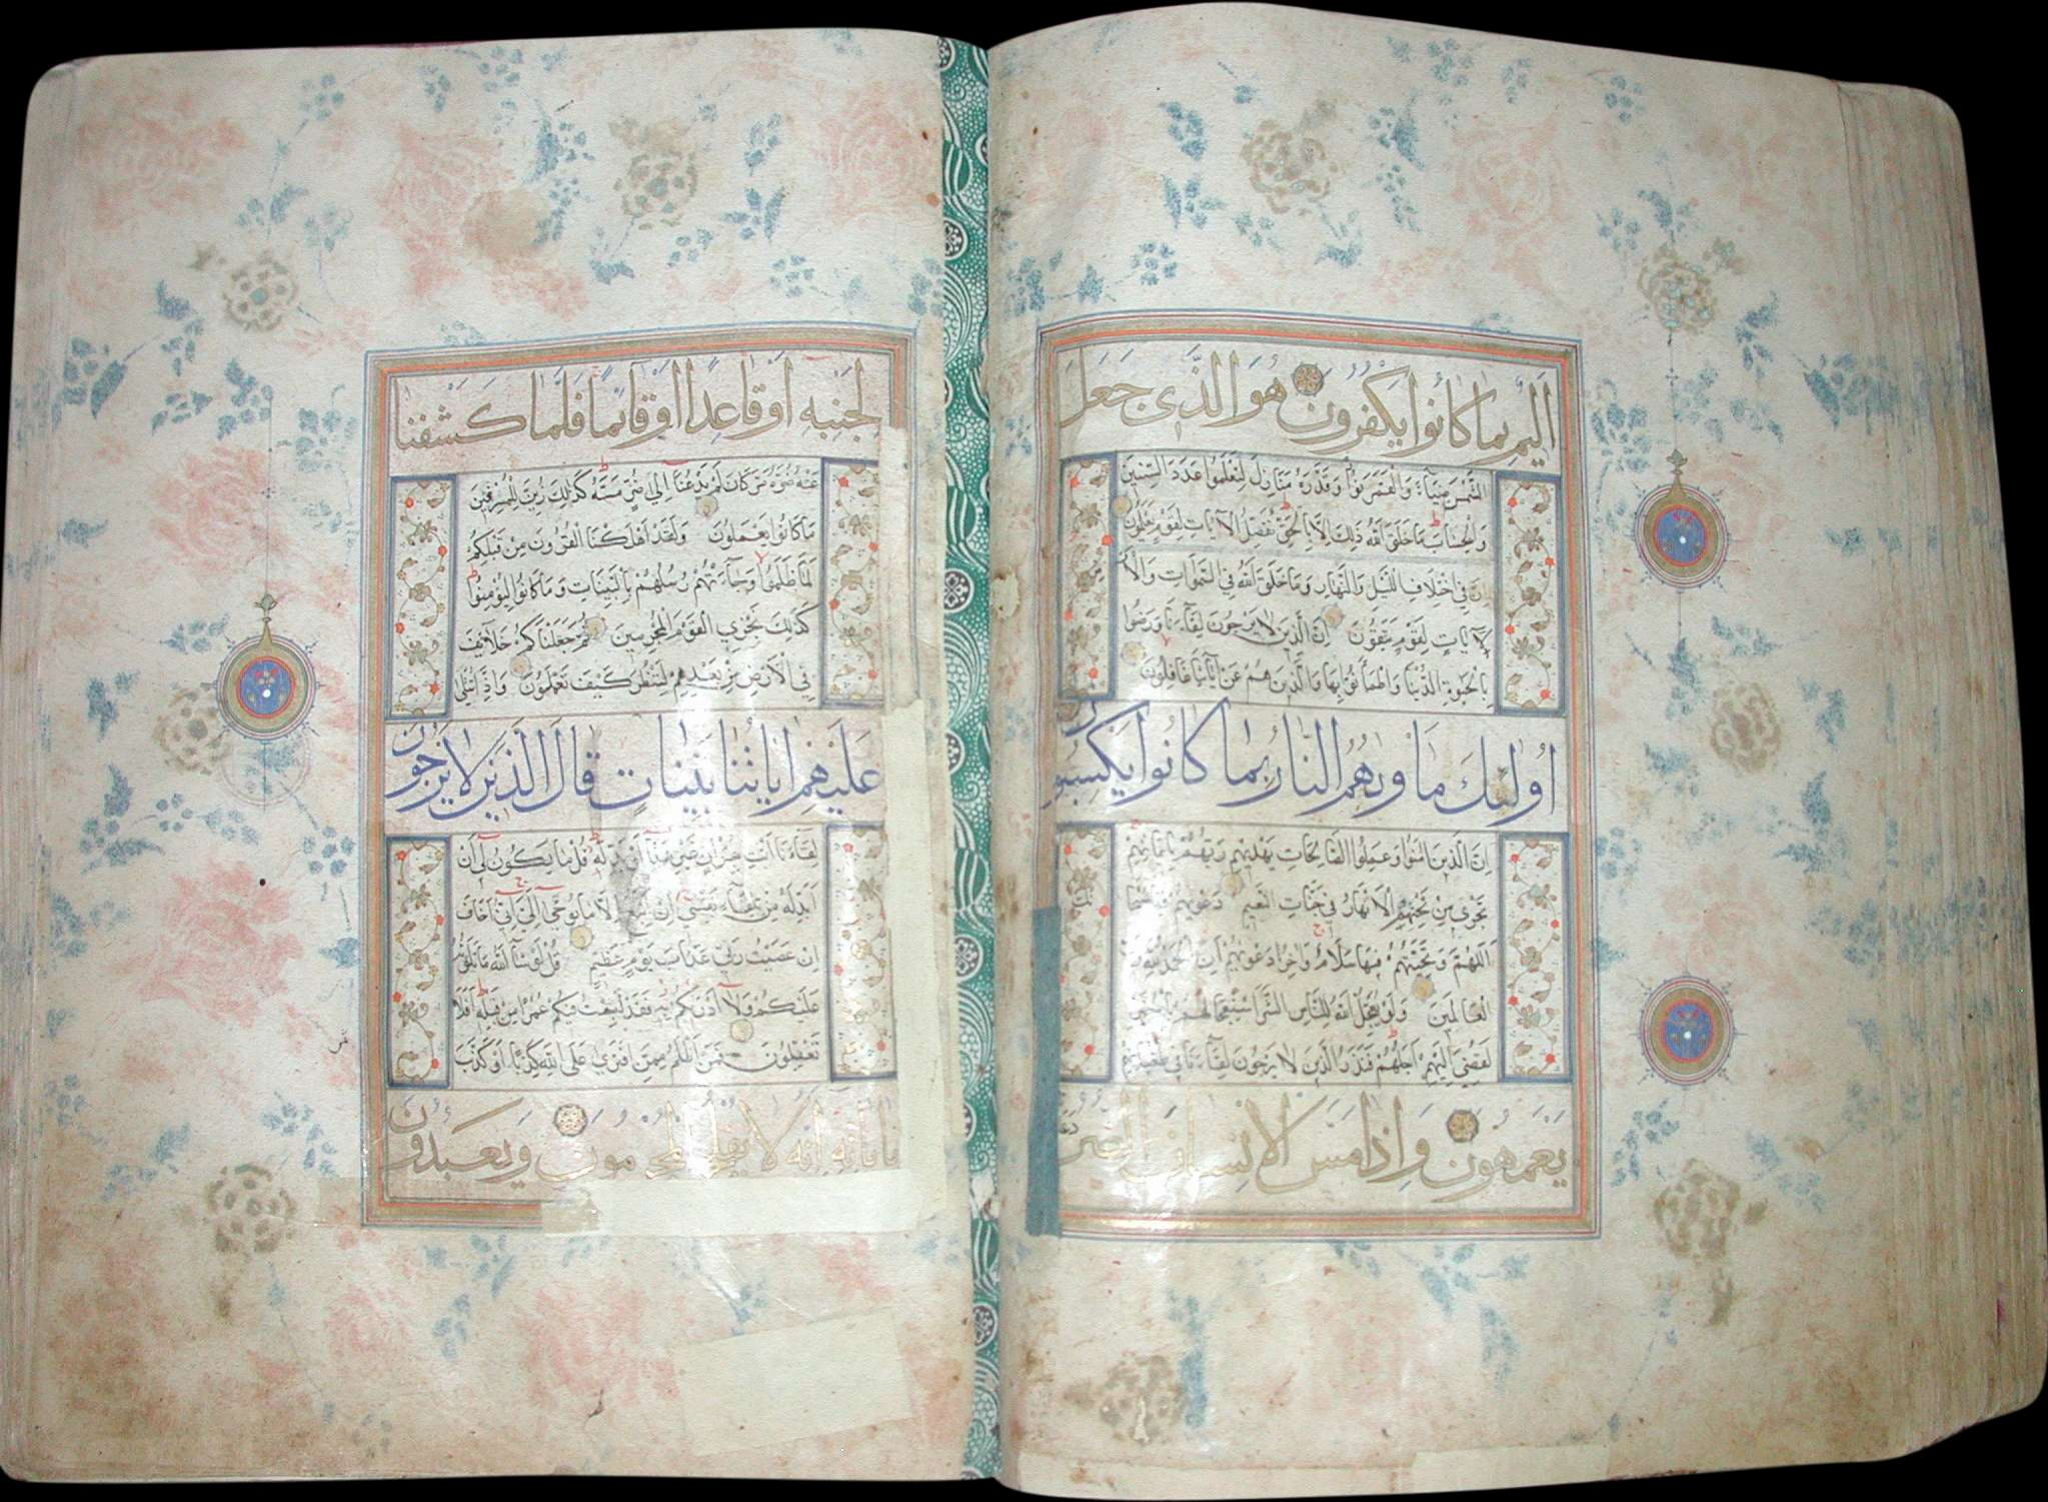 اَلِيمٌ بِمَا كَانُوا يَكْفُرُونَ هُوَ الَّذِي جَعَلَ
الشَّمْسَ ضِيَآءً وَالْقَمَرَ نُورًا وَقَدَّرَهُ مَنَازِلَ لِتَعْلَمُوا عَدَدَ السِّنِينَ
وَالْحِسَابَ مَا خَلَقَ اللّهُ ذلِكَ اِلَّا بِالْحَقِّ يُفَصِّلُ الْآيَاتِ لِقَوْمٍ يَعْلَمُونَ
اِنَّ فِي اخْتِلَافِ اللَّيْلِ وَالنَّهَارِ وَمَا خَلَقَ اللّهُ فِي السَّموَاتِ وَالْاَ
لَآيَاتٍ لِقَوْمٍ يَتَّقُونَ اِنَّ الَّذِينَ لَا يَرْجُونَ لِقَآءَنَا وَرَضُوا
بِالْحَيوةِ الدُّنْيَا وَاطْمَاَنُّوا بِهَا وَالَّذِينَ هُمْ عَنْ آيَاتِنَا غَافِلُونَ
اُولئِكَ مَاْويهُمُ النَّارُ بِمَا كَانُوا يَكْسِبُونَ
اِنَّ الَّذِينَ امَنُوا وَعَمِلُوا الصَّالِحَاتِ يَهْدِيهِمْ رَبُّهُمْ بِايمَانِهِمْ
تَجْرِي مِنْ تَحْتِهِمُ الْاَنْهَارُ فِي جَنَّاتِ النَّعِيمِ دَعْويهُمْ فِيهَا
اَللّهُمَّ وَتَحِيَّتُهُمْ فِيهَا سَلَامٌ وَاخِرُ دَعْويهُمْ اَنِ الْحَمْدُ لِلّهِ رَبِّ
الْعَالَمِينَ وَلَوْ يُعَجِّلُ اللّهُ لِلنَّاسِ الشَّرَّ اسْتِعْجَالَهُمْ بِالْخَيْرِ
لَقُضِيَ اِلَيْهِمْ اَجَلُهُمْ فَنَذَرُ الَّذِينَ لَا يَرْجُونَ لِقَآءَنَا فِي طُغْيَانِهِمْ
يَعْمَهُونَ وَاِذَا مَسَّ الْاِنْسَانَ الضُّرُّ دَعَانَا
لِجَنْبِهِ اَوْ قَاعِدًا اَوْ قَائِمًا فَلَمَّا كَشَفْنَا
عَنْهُ ضُرَّهُ مَرَّ كَاَنْ لَمْ يَدْعُنَا اِلى ضُرٍّ مَسَّهُ كَذلِكَ زُيِّنَ لِلْمُسْرِفِينَ
مَا كَانُوا يَعْمَلُونَ وَلَقَدْ اَهْلَكْنَا الْقُرُونَ مِنْ قَبْلِكُمْ
لَمَّا ظَلَمُوا وَجَآءَتْهُمْ رُسُلُهُمْ بِالْبَيِّنَاتِ وَمَا كَانُوا لِيُؤْمِنُوا
كَذلِكَ نَجْزِي الْقَوْمَ الْمُجْرِمِينَ ثُمَّ جَعَلْنَاكُمْ خَلَآئِفَ
فِي الْاَرْضِ مِنْ بَعْدِهِمْ لِنَنْظُرَ كَيْفَ تَعْمَلُونَ وَاِذَا تُتْلى
عَلَيْهِمْ ايَاتُنَا بَيِّنَاتٍ قَالَ الَّذِينَ لَا يَرْجُونَ
لِقَآءَنَا ائْتِ بِقُرْانٍ غَيْرِ هذَا اَوْ بَدِّلْهُ قُلْ مَا يَكُونُ لِي اَنْ
اُبَدِّلَهُ مِنْ تِلْقَآءِ نَفْسِي اِنْ اَتَّبِعُ اِلَّا مَا يُوحى اِلَيَّ اِنِّي اَخَافُ
اِنْ عَصَيْتُ رَبِّي عَذَابَ يَوْمٍ عَظِيمٍ قُلْ لَوْ شَآءَ اللّهُ مَا تَلَوْتُهُ
عَلَيْكُمْ وَلَا اَدْريكُمْ بِهِ فَقَدْ لَبِثْتُ فِيكُمْ عُمُرًا مِنْ قَبْلِهِ اَفَلَا
تَعْقِلُونَ فَمَنْ اَظْلَمُ مِمَّنِ افْتَرى عَلَى اللّهِ كَذِبًا اَوْ كَذَّبَ
بِايَاتِهِ اِنَّهُ لَا يُفْلِحُ الْمُجْرِمُونَ وَيَعْبُدُونَ